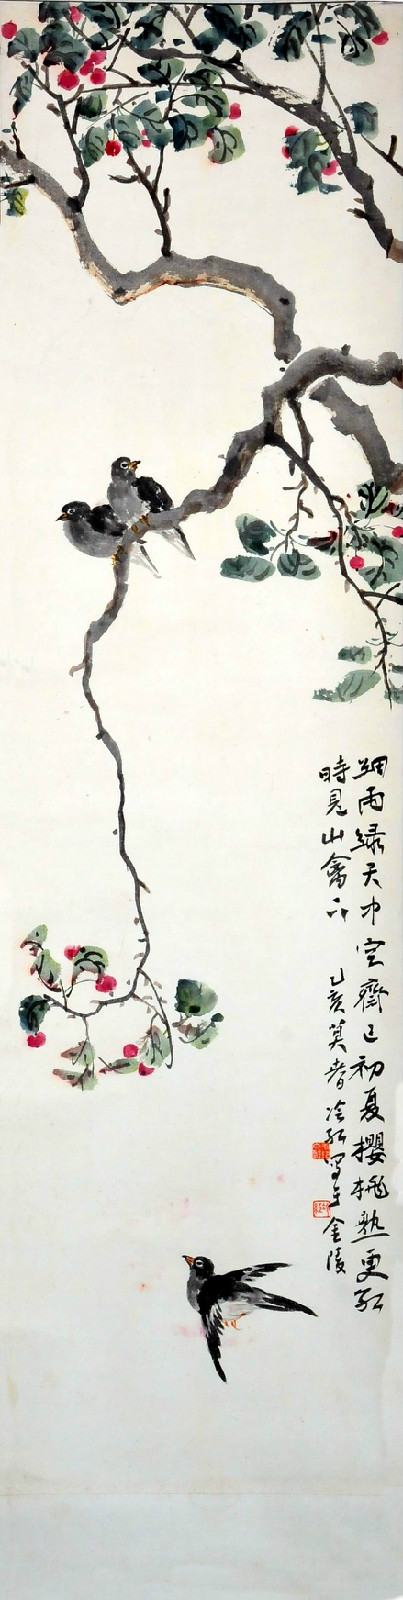 烟雨綠天中空齋已初夏櫻桃熟更紅
時見山禽下
乙亥莫春冷紅寫于金陵